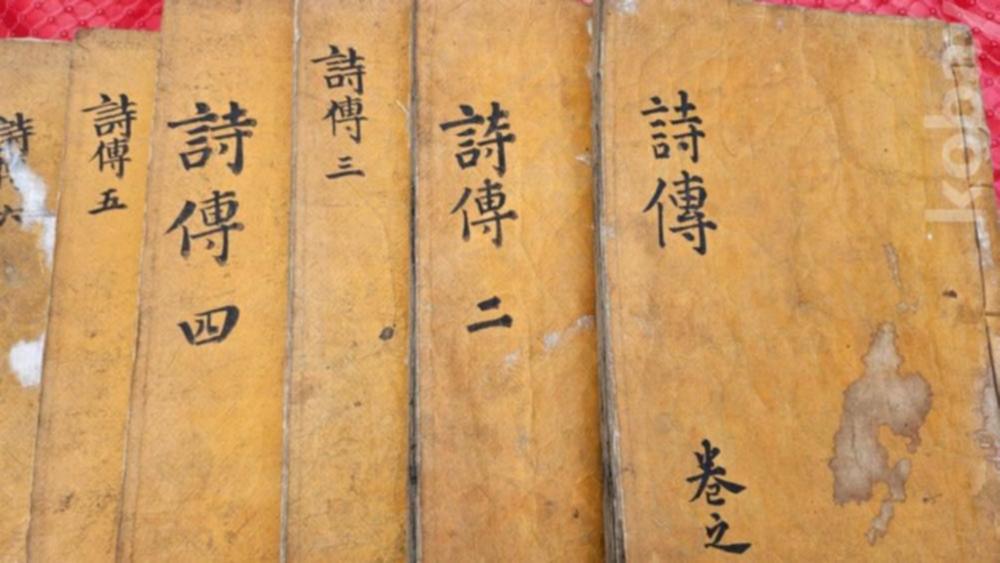 詩傳
卷之
詩傳 二
詩傳 三
詩傳 四
詩傳 五
詩 六
kobay